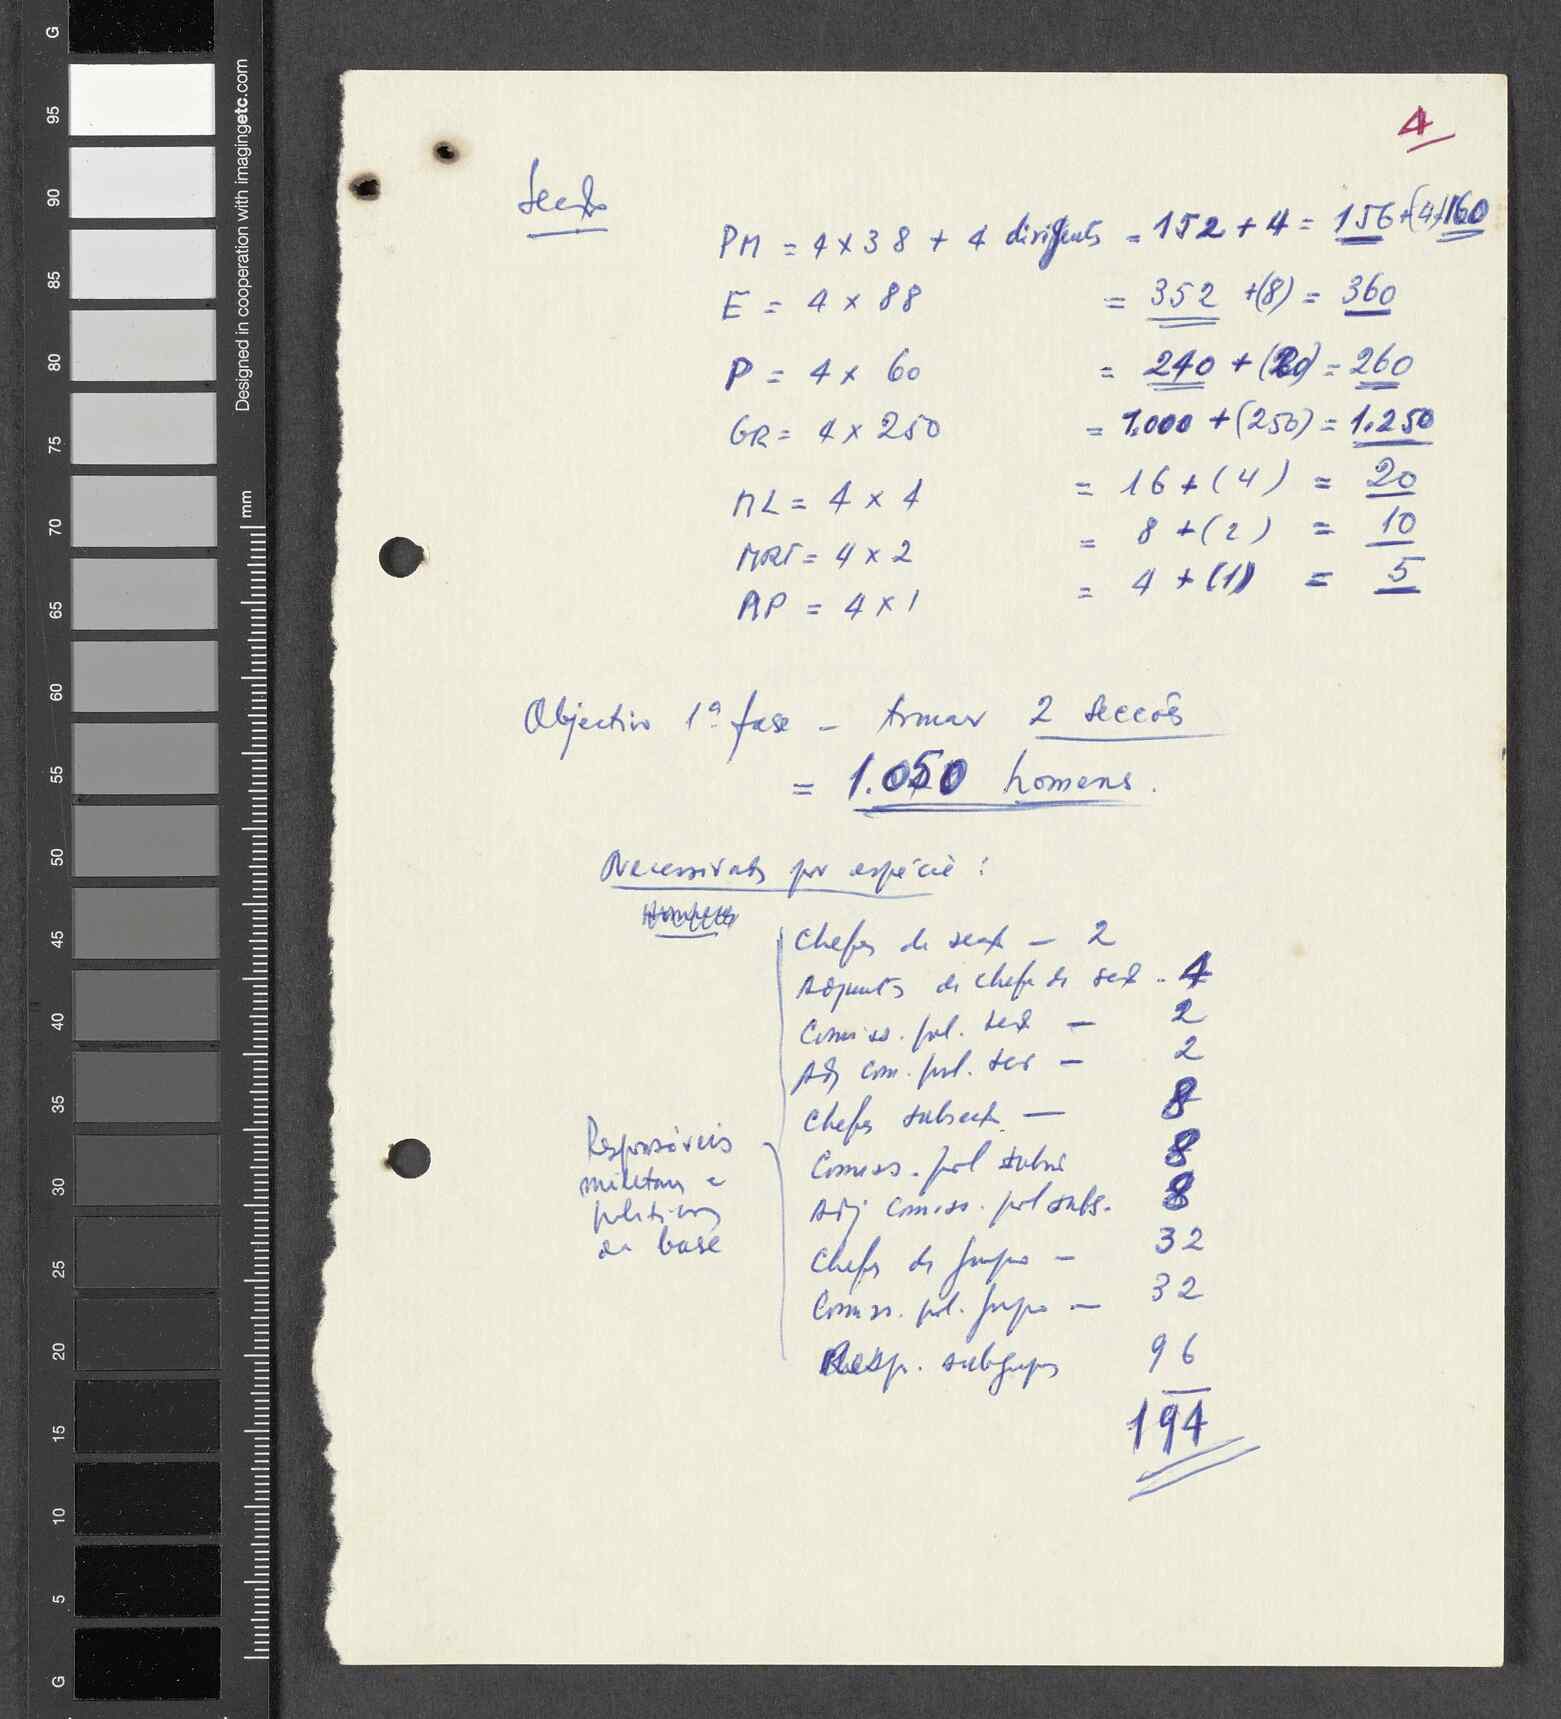 4
Secção
PM = 4 x 38 + 4 dirigentes = 152 + 4 = 156 + (4) 160
E = 4 x 88 = 352 + (8) = 360
P = 4 x 60 = 240 + (20) = 260
GR = 4 x 250 = 1.000 + (250) = 1.250
ML = 4 x 4 = 16 + (4) = 20
MRT = 4 x 2 = 8 + (2) = 10
AP = 4 x 1 = 4 + (1) = 5
Objectivo 1ª fase – armar 2 secções
= 1.050 homens.
Necessidades por espécie :
Chefes de sect – 2
Adjuntos de chefe de sect - 4
Comiss. pol. sect – 2
Adj com. pol. sec – 2
Chefes subsect. — 8
Comiss. pol subs 8
Adj comiss. pol subs. 8
Chefes de grupo – 32
Comiss. pol. grupo – 32
Resp. subgrupos 96
194
Responsáveis
militares e
políticos
de base
G
95
90
85
80
75
70
65
60
55
50
45
40
35
30
25
20
15
10
5
G
Designed in cooperation with imagingetc.com
mm